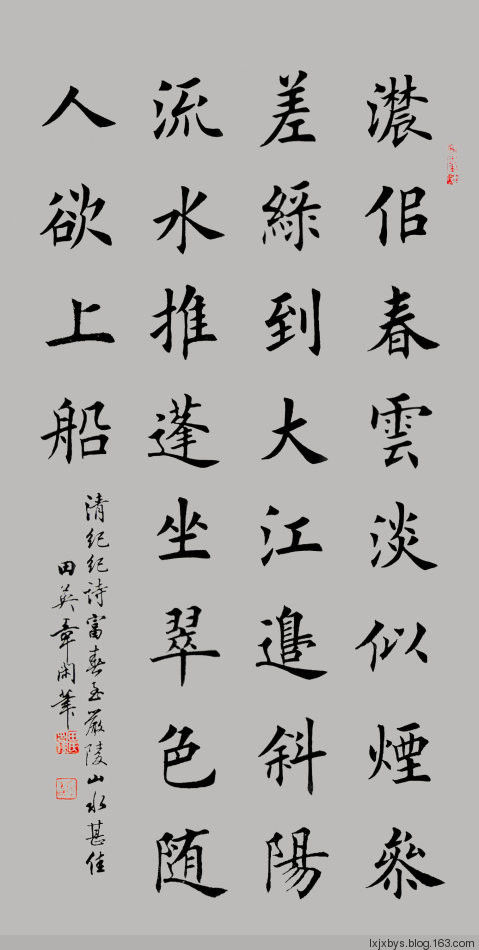 濃佀春雲淡似煙參
差綠到大江邊斜陽
流水推蓬坐翠色随
人欲上船
清紀紀詩富春至嚴陵山水甚佳
田英章閑筆
lxjxbys.blog.163.com